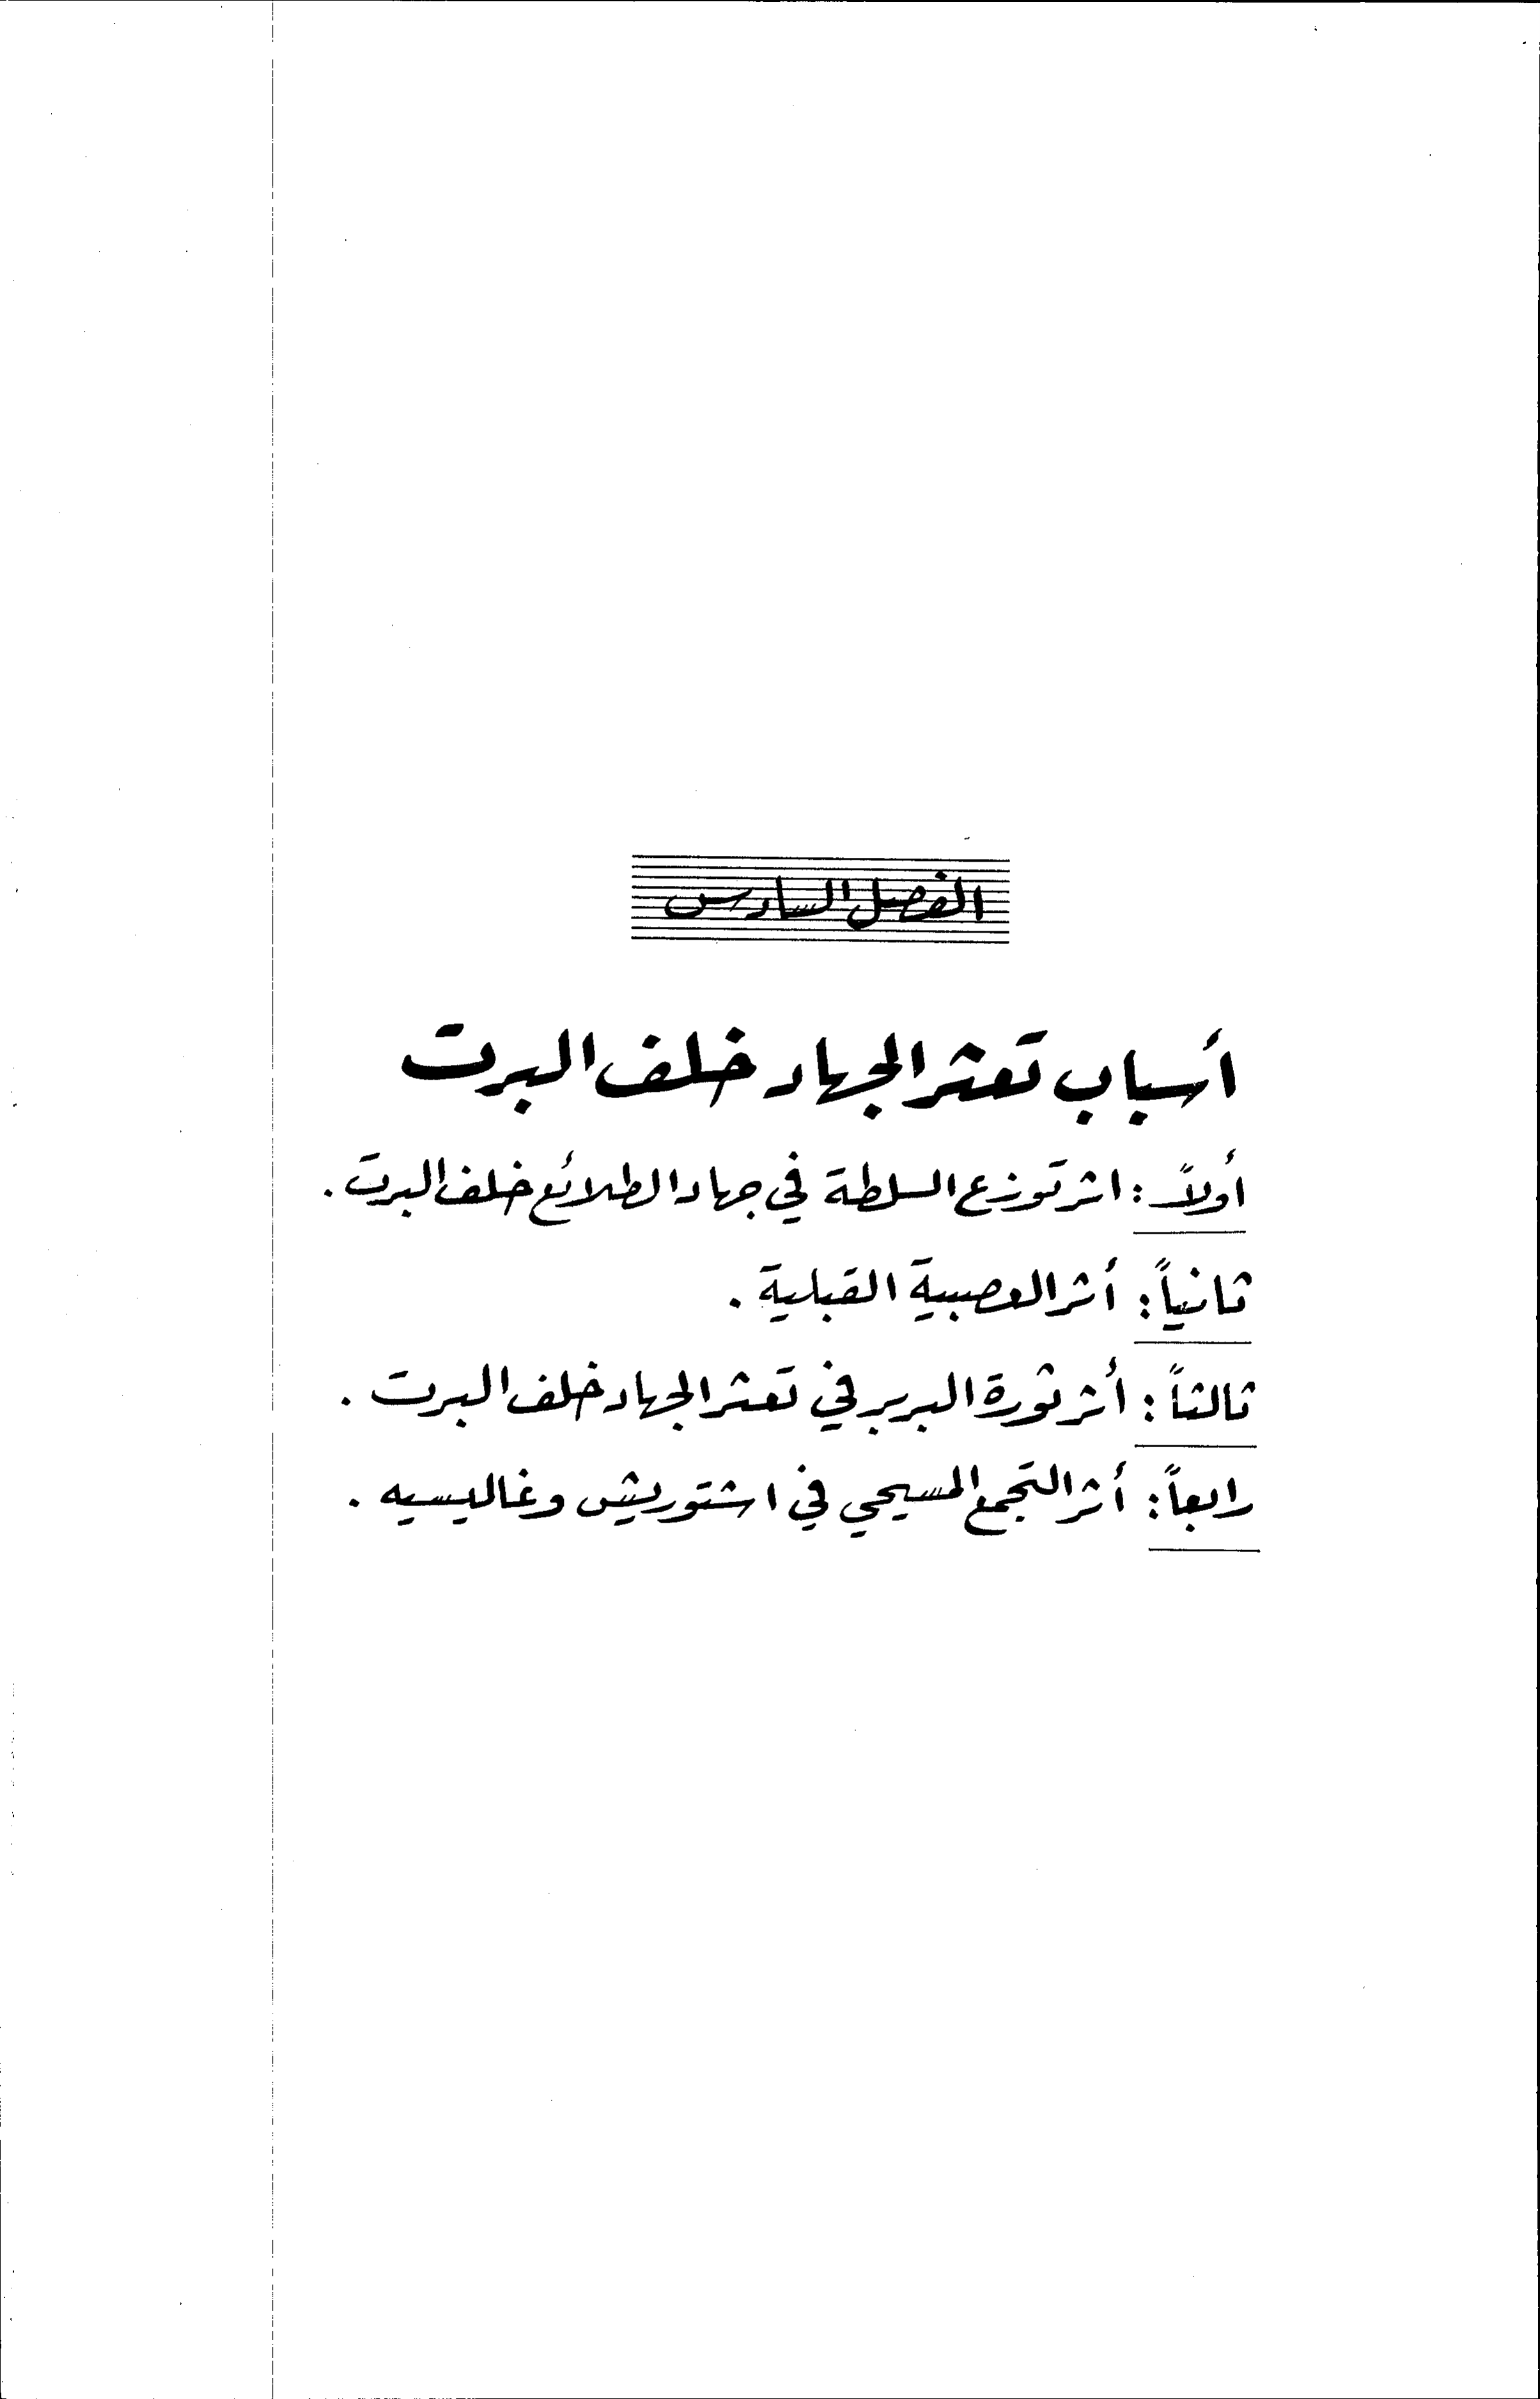 الفصل السادس
أسباب تعثر الجهاد خلف البرت
أولاً : اثر توزع السلطة في جهاد الطلائع خلف البرت .
ثانياً : أثر العصبية القبلية .
ثالثاً : أثر ثورة البربر في تعثر الجهاد خلف البرت .
رابعاً : أثر التجمع المسيحي في اشتوريش وغاليسيه .